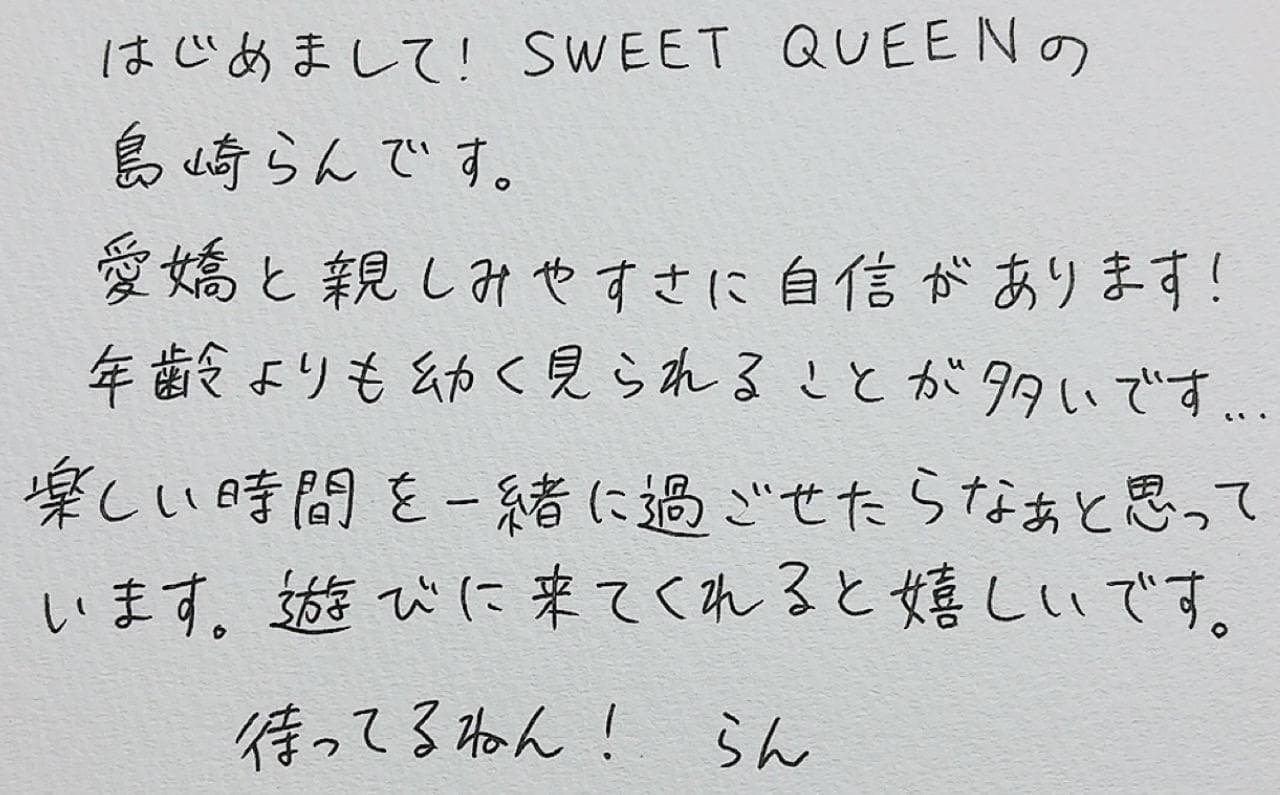 はじめまして! SWEET QUEENの
島崎らんです。
愛嬌と親しみやすさに自信があります!
年齢よりも幼く見られることが多いです...
楽しい時間を一緒に過ごせたらなぁと思って
います。遊びに来てくれると嬉しいです。
待ってるねん! らん